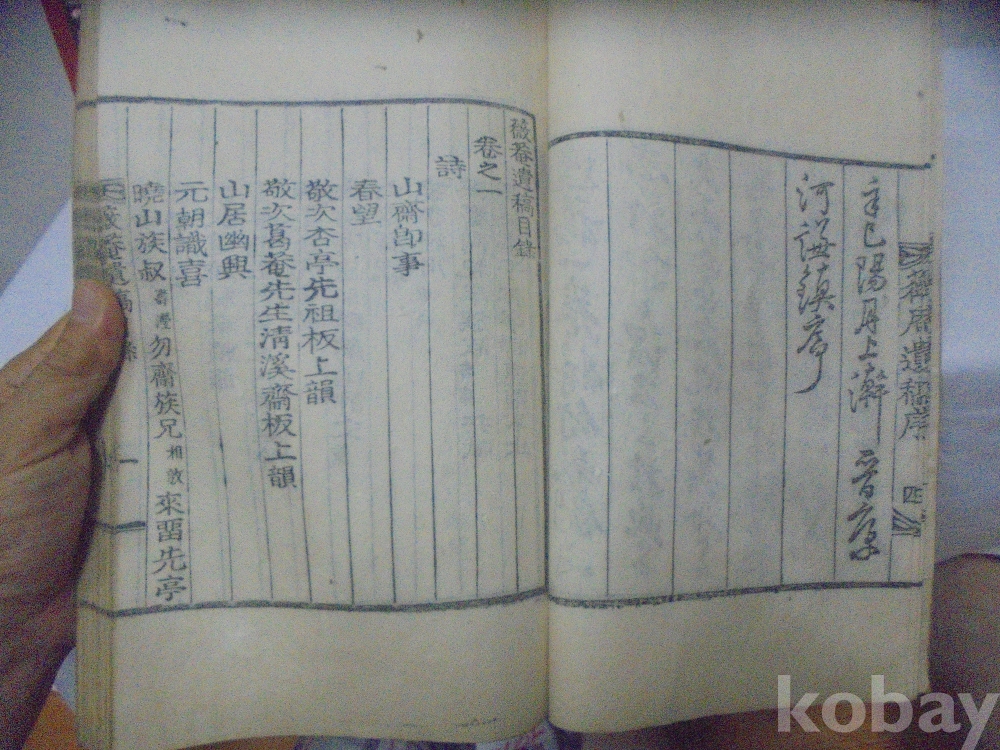 薇庵遺稿序 四
辛巳陽月上澣 晉康
河謙鎭序
薇菴遺稿目錄
卷之一
詩
山齋卽事
春望
敬次杏亭先祖板上韻
敬次葛菴先生淸溪齋板上韻
山居幽興
元朝識喜
曉山族叔壽瀅勿齋族兄相敦來畱先亭
薇菴遺稿目錄 一
kobay